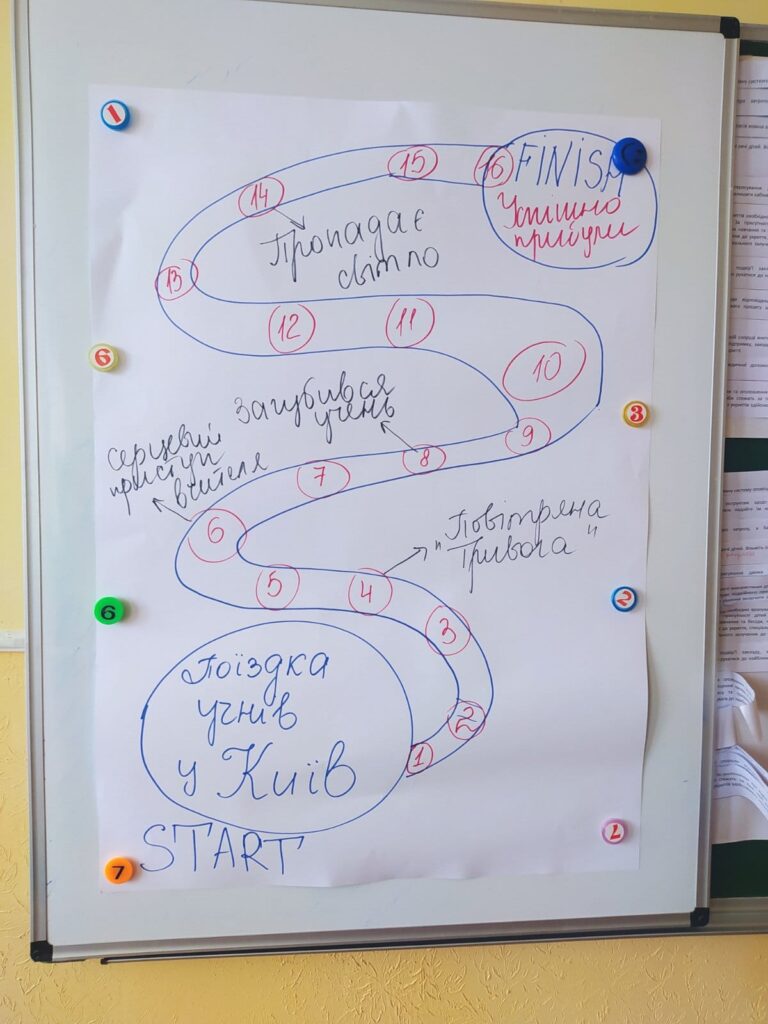 1
15
16
FINISH
Успішно
прибули
14
Пропадає
світло
13
12
11
6
10
3
Загубився
учень
9
8
7
серцевий
приступ
вчителя
6
"Повітряна
Тривога"
5
4
6
2
3
Поїздка
учнів
у Київ
2
1
7
START
7